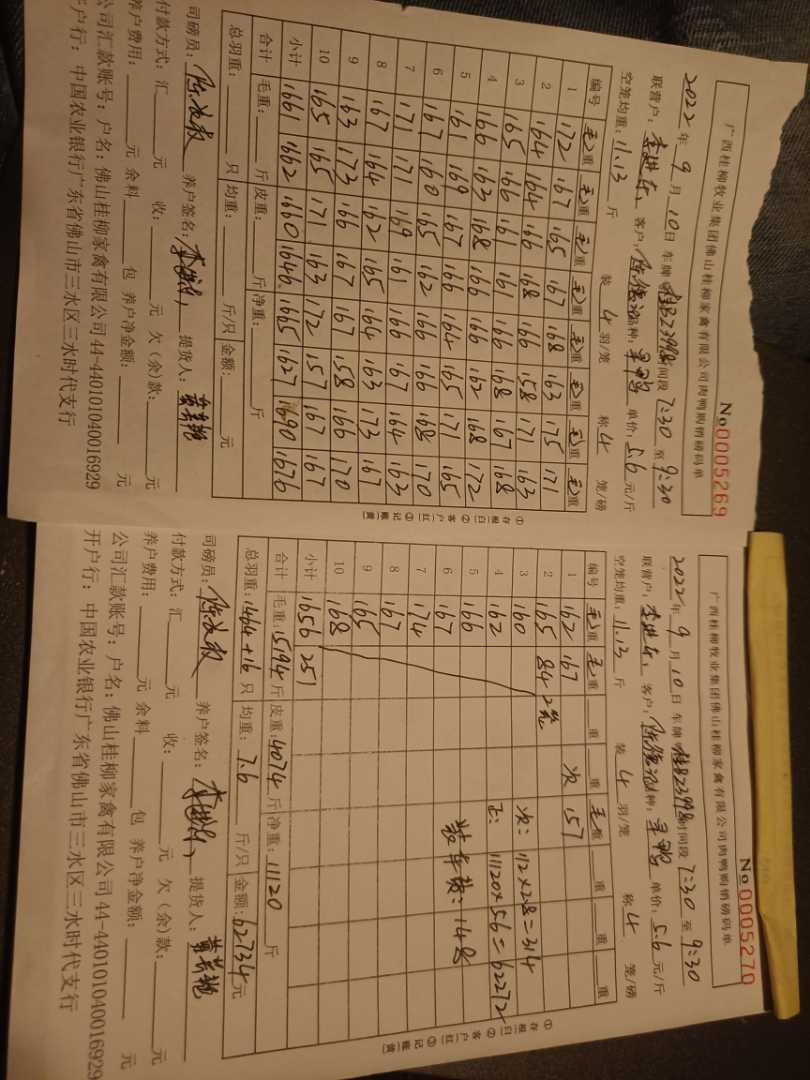 广西桂柳牧业集团佛山桂柳家禽有限公司肉鸭购销磅码单
No0005269
2022年9月10日 车牌 桂B23998 时间段 7:30 至 9:30
联营户: 客户: 品种: 单价: 5.6 元/斤
空笼均重: 11.13 斤 装 4 羽/笼 称 4 笼/磅
编号 毛重 毛重 毛重 毛重 毛重 毛重 毛重 毛重
1 172 167 165 167 168 163 175 171
2 164 164 166 168 166 158 171 163
3 165 166 161 161 166 168 167 168
4 166 163 168 166 166 162 168 172
5 161 169 167 166 164 165 171 165
6 167 160 165 162 166 166 168 170
7 171 171 169 161 166 167 164 163
8 167 164 162 165 164 163 173 167
9 163 173 166 167 167 158 166 170
10 165 165 171 163 172 157 167 167
小计 1661 1662 1660 1646 1665 1627 1690 1676
合计 毛重: 斤 皮重: 斤 净重: 斤
总羽重: 只 均重: 斤/只 金额: 元
司磅员: 养户签名: 提货人:
付款方式: 汇 元 收: 元 欠(余)款: 元
养户费用: 元 余料 包 养户净金额: 元
公司汇款账号: 户名: 佛山桂柳家禽有限公司 44-440101040016929
开户行: 中国农业银行广东省佛山市三水区三水时代支行
①存根(白)②客户(红)③记账(黄)
广西桂柳牧业集团佛山桂柳家禽有限公司肉鸭购销磅码单
No0005270
2022年9月10日 车牌 桂B23998 时间段 7:30 至 9:30
联营户: 客户: 品种: 单价: 5.6 元/斤
空笼均重: 11.13 斤 装 4 羽/笼 称 4 笼/磅
编号 毛重 毛重 重 重 毛重 重 重 重
1 162 167 次 157
2 165 84 2笼
3 160 次: 112×2.8=314
4 162 正: 11120×5.6=62272
5 166 装车费: 148
6 167
7 174
8 167
9 165
10 168
小计 1656 251
合计 毛重: 15194 斤 皮重: 4074 斤 净重: 11120 斤
总羽重: 1464+16 只 均重: 7.6 斤/只 金额: 62734 元
司磅员: 养户签名: 提货人:
付款方式: 汇 元 收: 元 欠(余)款: 元
养户费用: 元 余料 包 养户净金额: 元
公司汇款账号: 户名: 佛山桂柳家禽有限公司 44-440101040016929
开户行: 中国农业银行广东省佛山市三水区三水时代支行
①存根(白)②客户(红)③记账(黄)